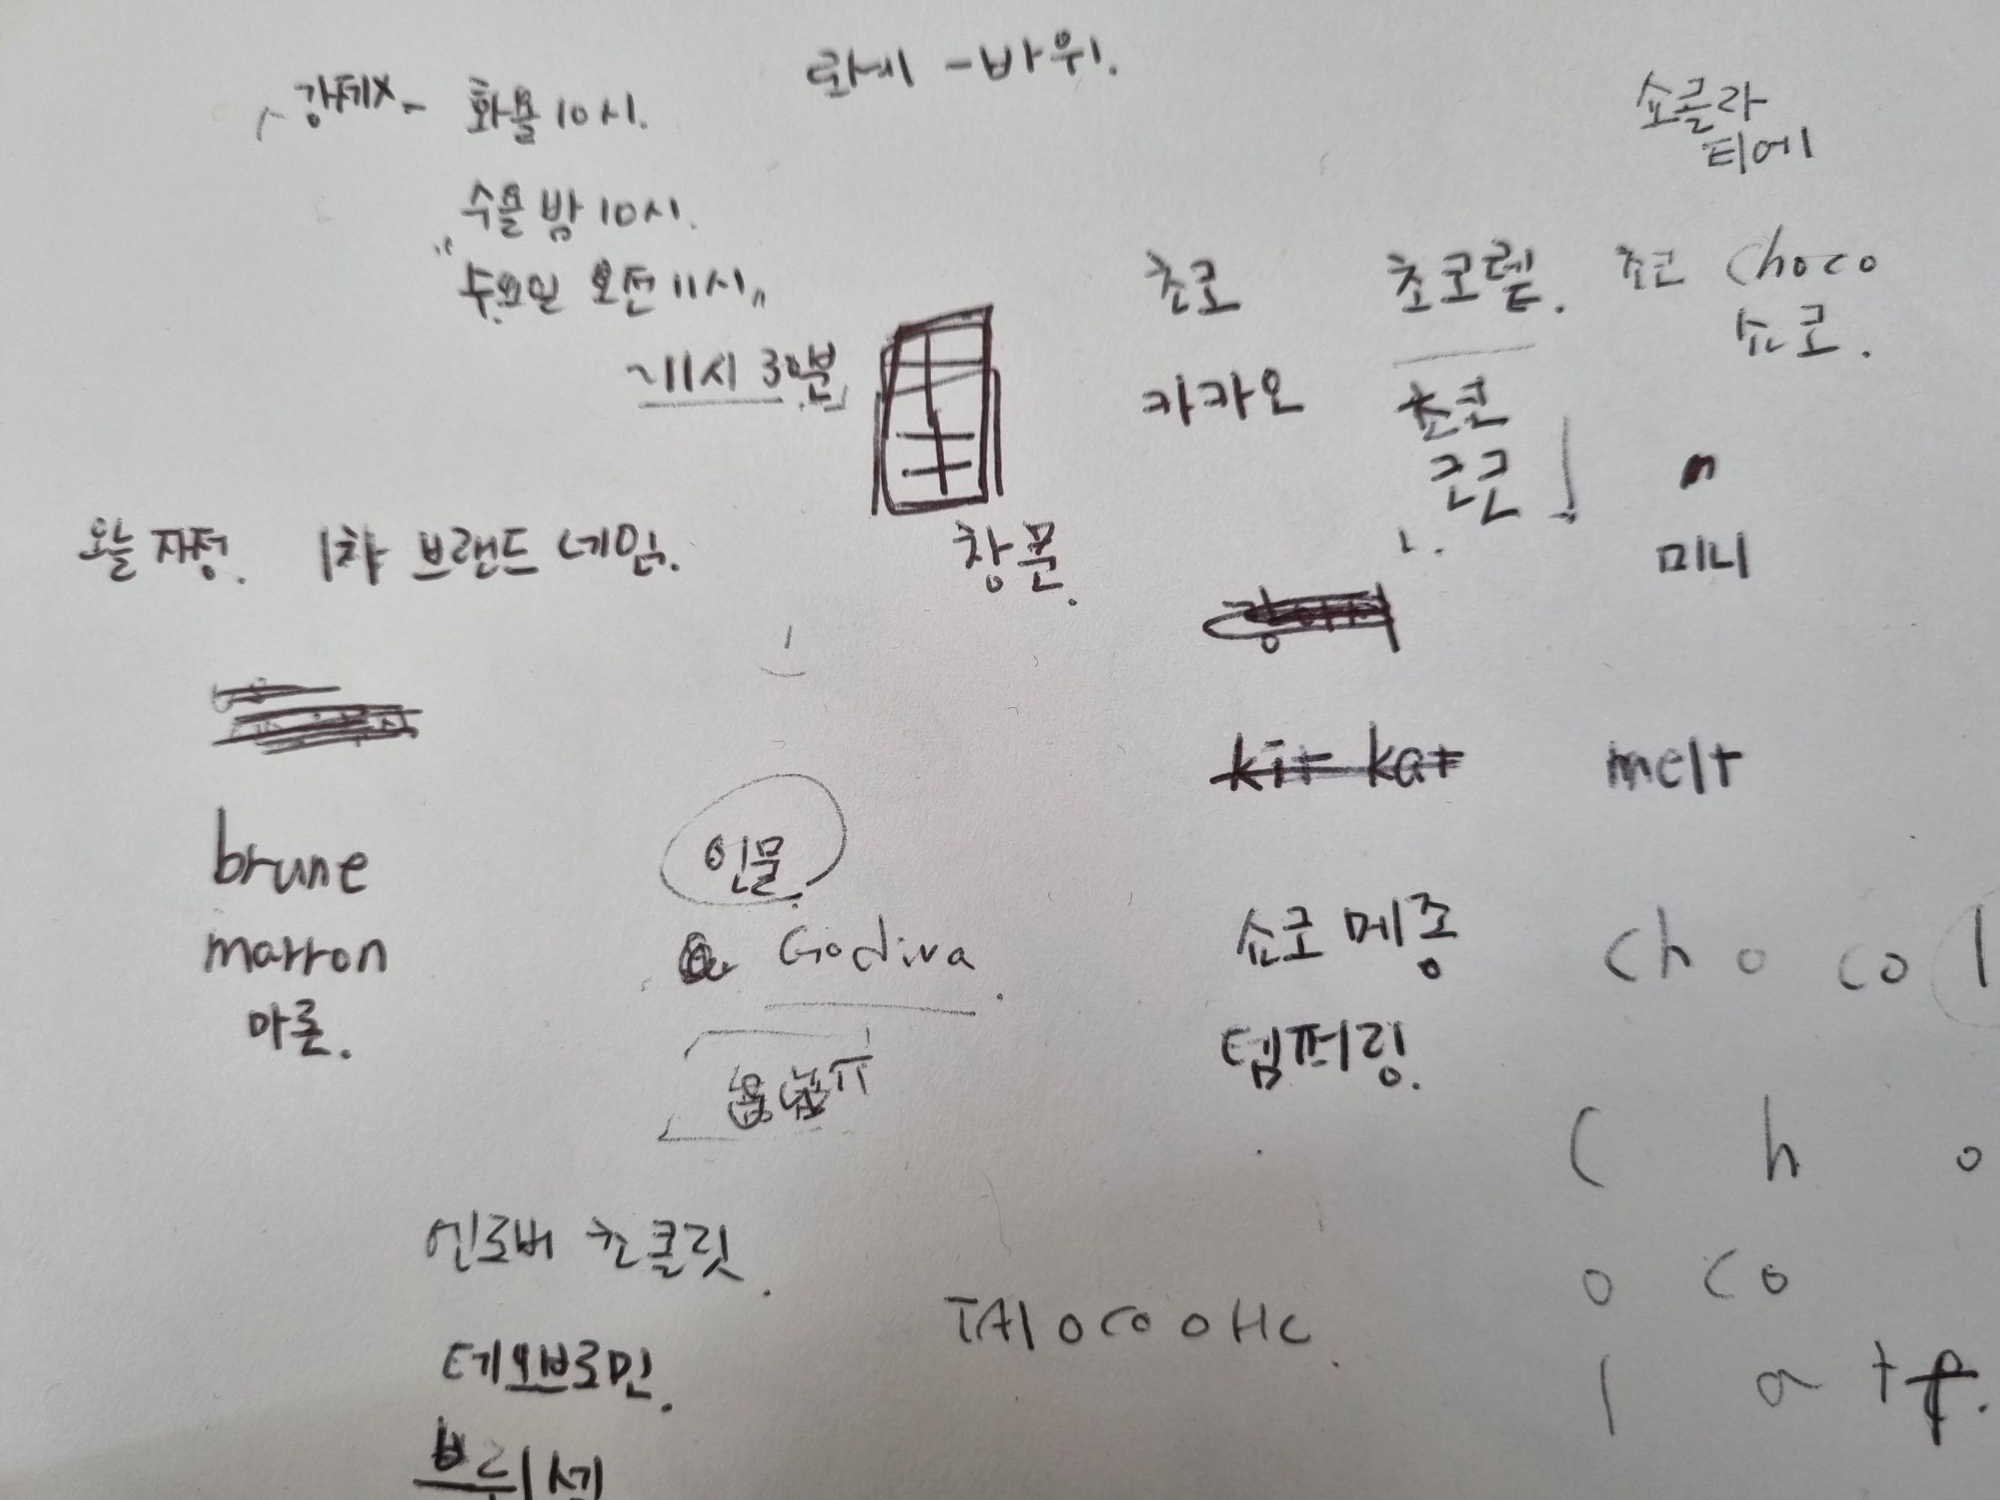 로세 - 바위.
강제X - 화욜 10시.
쇼콜라
티에
수욜 밤 10시.
"수요일 오전 11시"
~11시 30분
초코 초코렡. 초코 choco
쇼코.
카카오 초코
쿠쿤
창문.
미니
오늘 자정. 1차 브랜드 네임.
kit kat melt
brune
인물.
marron
Godiva.
쇼코 메종
chocol
마론.
템퍼링.
c h o
엔로버 초콜릿.
o co
TAlocooHc.
테오브로민.
l a t
브뤼셀